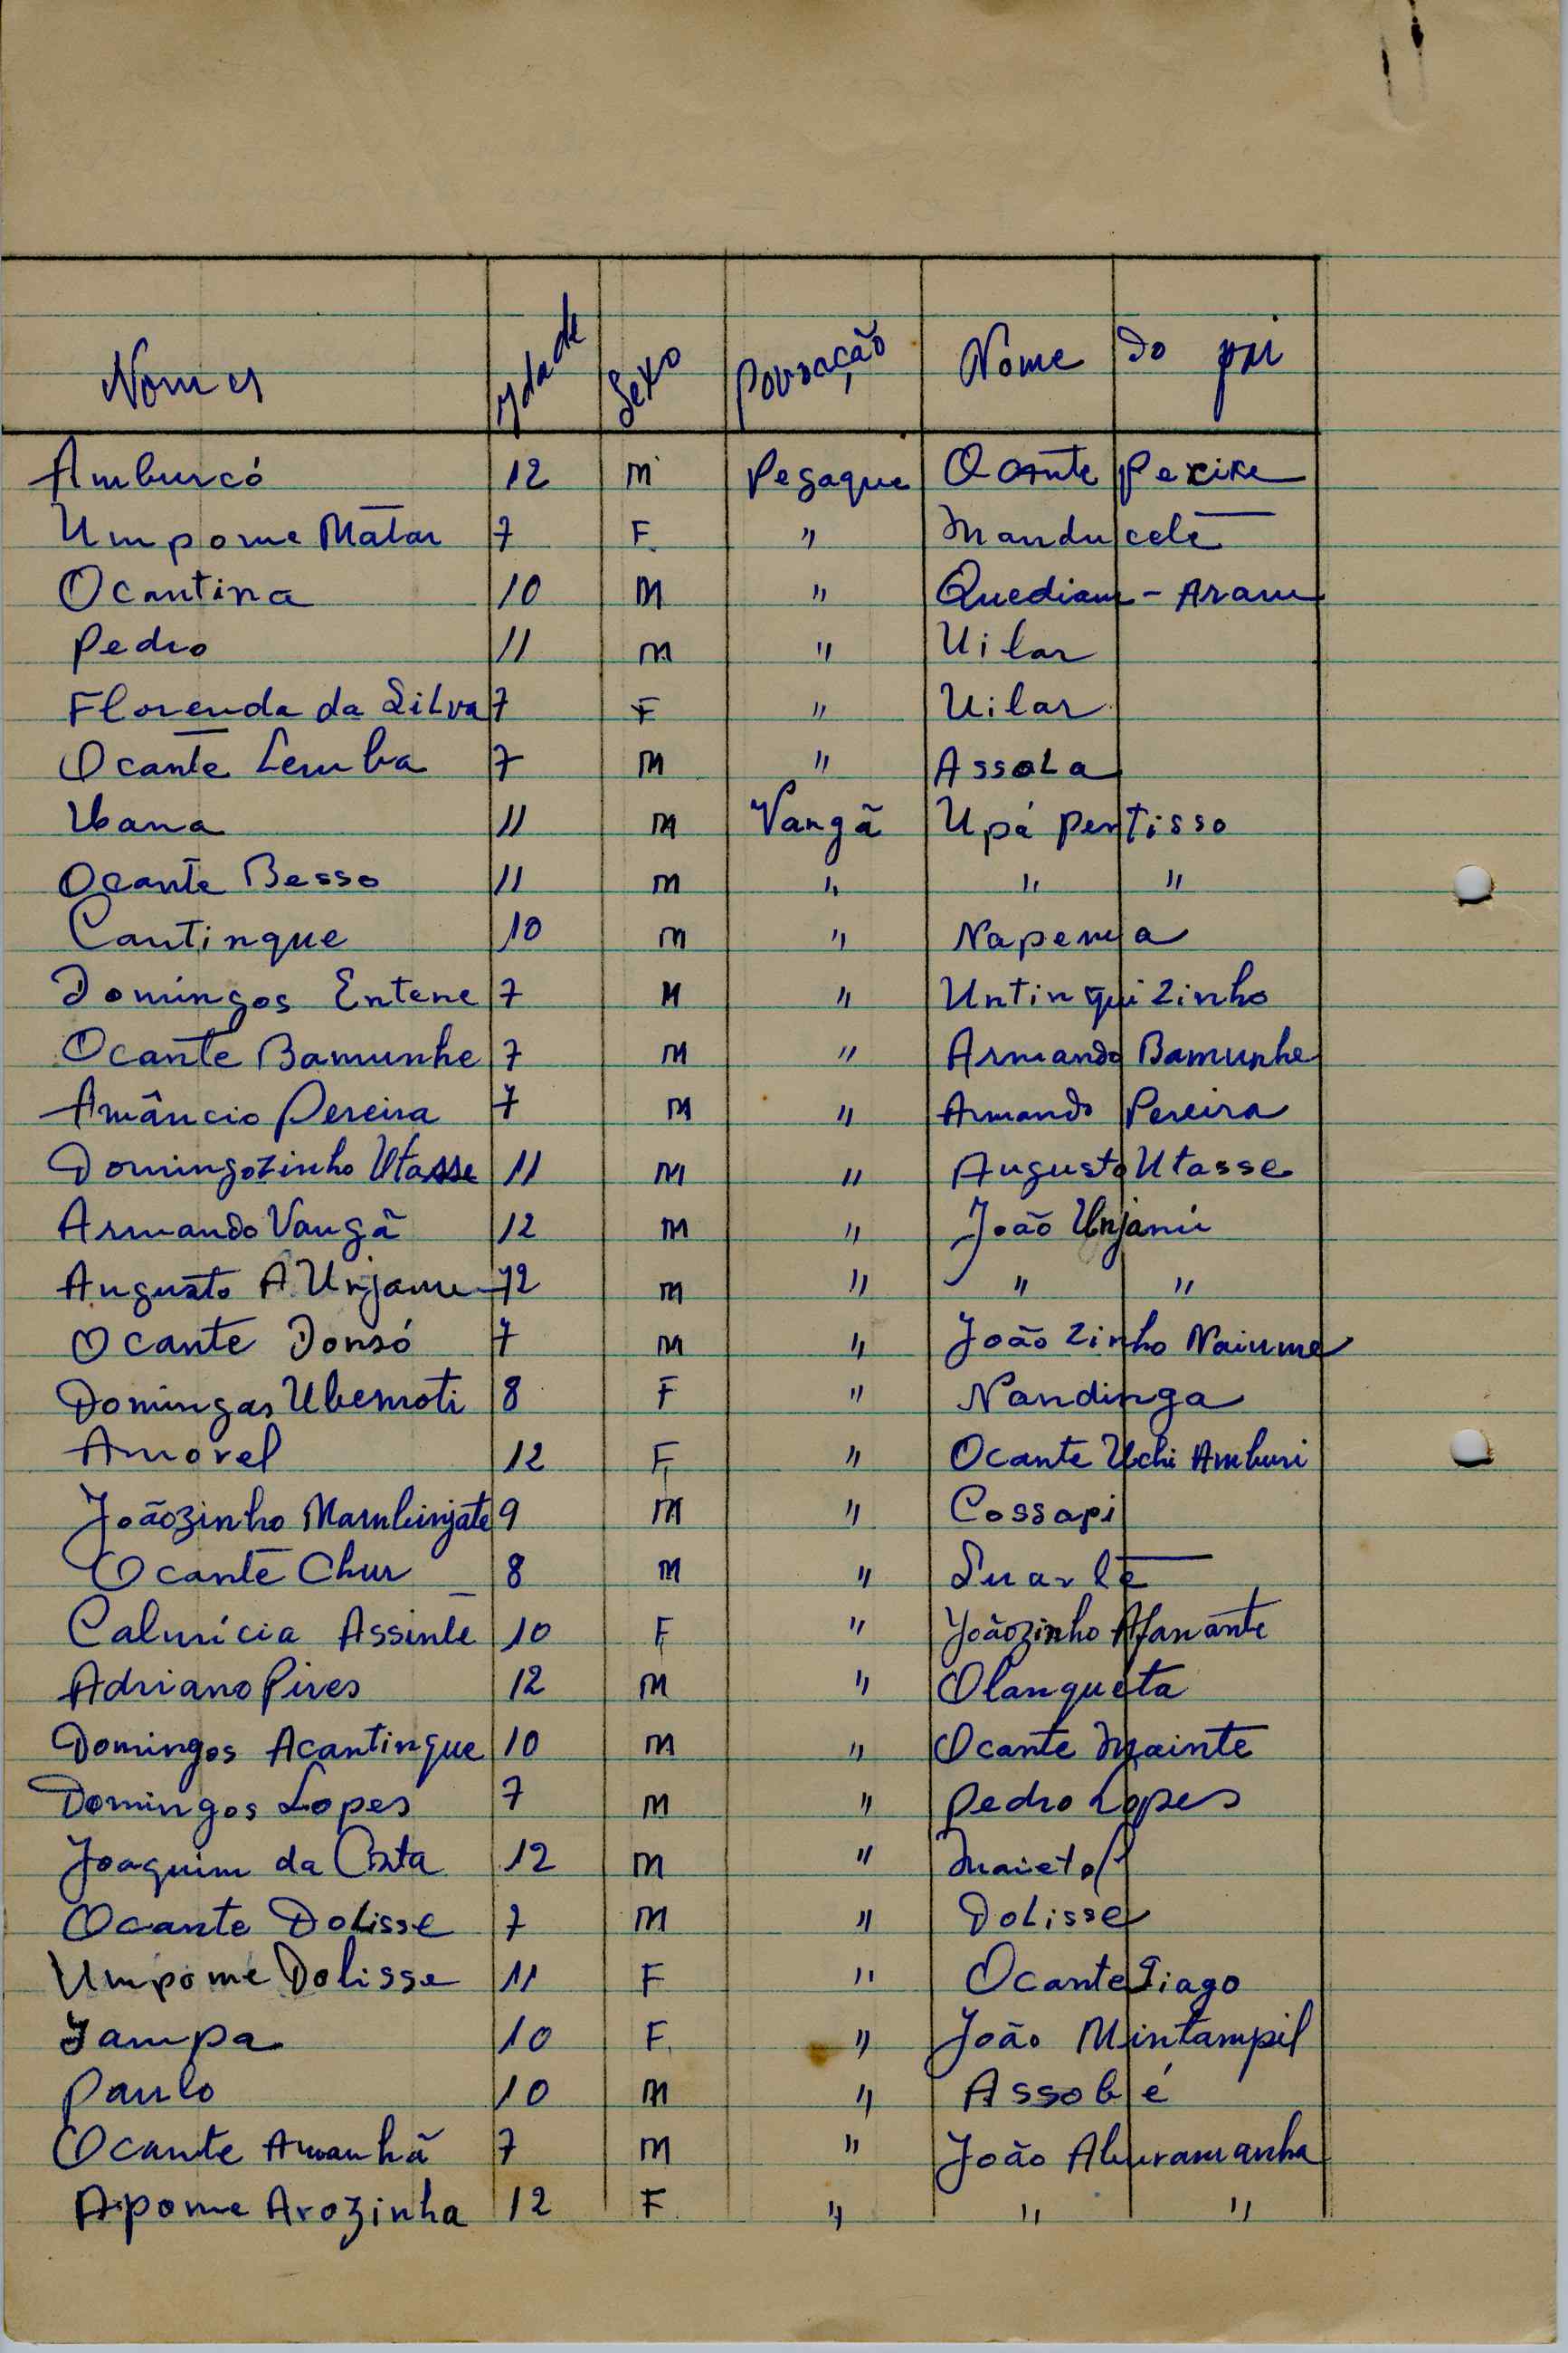 Nomes Ydade Sexo Povoação Nome do pai
Amburcó 12 M Pegaque Ocante Pexixe
Umpome Matar 7 F " Manducete
Ocantina 10 M " Quediam - Aram
Pedro 11 M " Uilar
Florenda da Silva 7 F " Uilar
Ocante Lemba 7 M " Assola
Ubana 11 M Vangã Upá Pentisso
Ocante Besso 11 M " " "
Cantinque 10 M " Napema
Domingos Entene 7 M " Untinquizinho
Ocante Bamunhe 7 M " Armando Bamunhe
Amâncio Pereira 7 M " Armando Pereira
Domingozinho Utasse 11 M " Augusto Utasse
Armando Vangã 12 M " João Unjami
Augusto A. Unjame 12 M " " "
Ocante Donsó 7 M " João Zinho Naiume
Domingas Ubemoti 8 F " Nandinga
Amorel 12 F " Ocante Uchi Amburi
Joãozinho Mambinjate 9 M " Cossapi
Ocante Chur 8 M "
Calurícia Assinte 10 F " Joãozinho Afanante
Adriano Pires 12 M " Olanqueta
Domingos Acantinque 10 M " Ocante Mainte
Domingos Lopes 7 M " Pedro Lopes
Joaquim da Costa 12 M "
Ocante Dolisse 7 M " Dolisse
Umpome Dolisse 11 F " Ocante Tiago
Jampa 10 F " João Mintampil
Paulo 10 M " Assobé
Ocante Amanhã 7 M " João Aburamanha
Apome Arozinha 12 F " " "